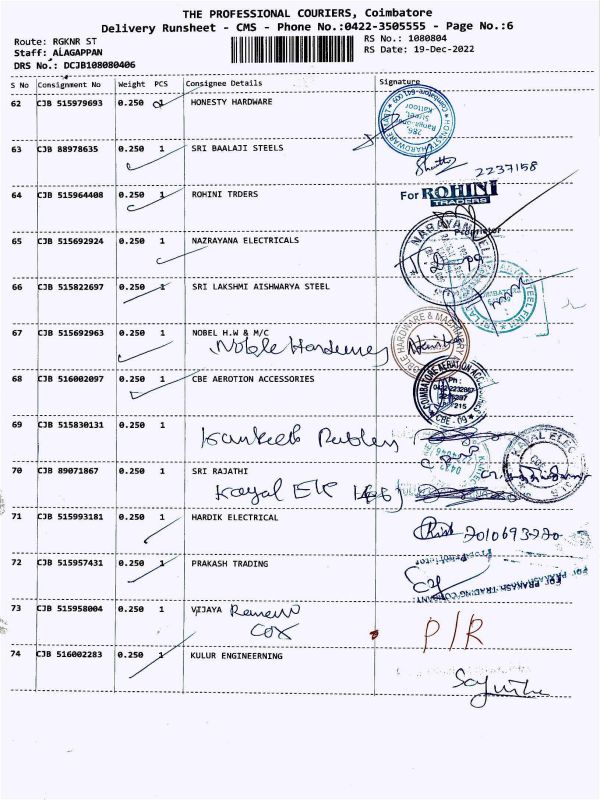 THE PROFESSIONAL COURIERS, Coimbatore
Delivery Runsheet - CMS - Phone No.:0422-3505555 - Page No.:6
Route: RGKNR ST
RS No.: 1080804
Staff: ALAGAPPAN
RS Date: 19-Dec-2022
DRS No.: DCJB108080406
S No Consignment No Weight PCS Consignee Details Signature
62 CJB 515979693 0.250 HONESTY HARDWARE
63 CJB 88978635 0.250 1 SRI BAALAJI STEELS
2237158
64 CJB 515964408 0.250 1 ROHINI TRDERS
For ROHINI TRADERS
Proprietor
65 CJB 515692924 0.250 1 NAZRAYANA ELECTRICALS
66 CJB 515822697 0.250 1 SRI LAKSHMI AISHWARYA STEEL
67 CJB 515692963 0.250 1 NOBEL H.W & M/C
NOBLE HARDWARE & MACHINERY
68 CJB 516002097 0.250 1 CBE AEROTION ACCESSORIES
COIMBATORE AERATION ACC
CBE - 09
69 CJB 515830131 0.250 1
70 CJB 89071867 0.250 1 SRI RAJATHI
KAYAL ELEC
71 CJB 515993181 0.250 1 HARDIK ELECTRICAL
2010693220
72 CJB 515957431 0.250 1 PRAKASH TRADING
For PRAKASH TRADING COMPANY
73 CJB 515958004 0.250 1 VIJAYA
COX
P/R
74 CJB 516002283 0.250 1 KULUR ENGINEERNING